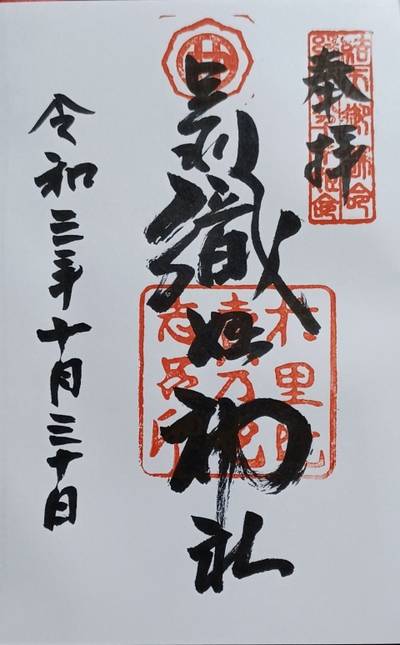 奉拝
足利織姫神社
令和三年十月三十日